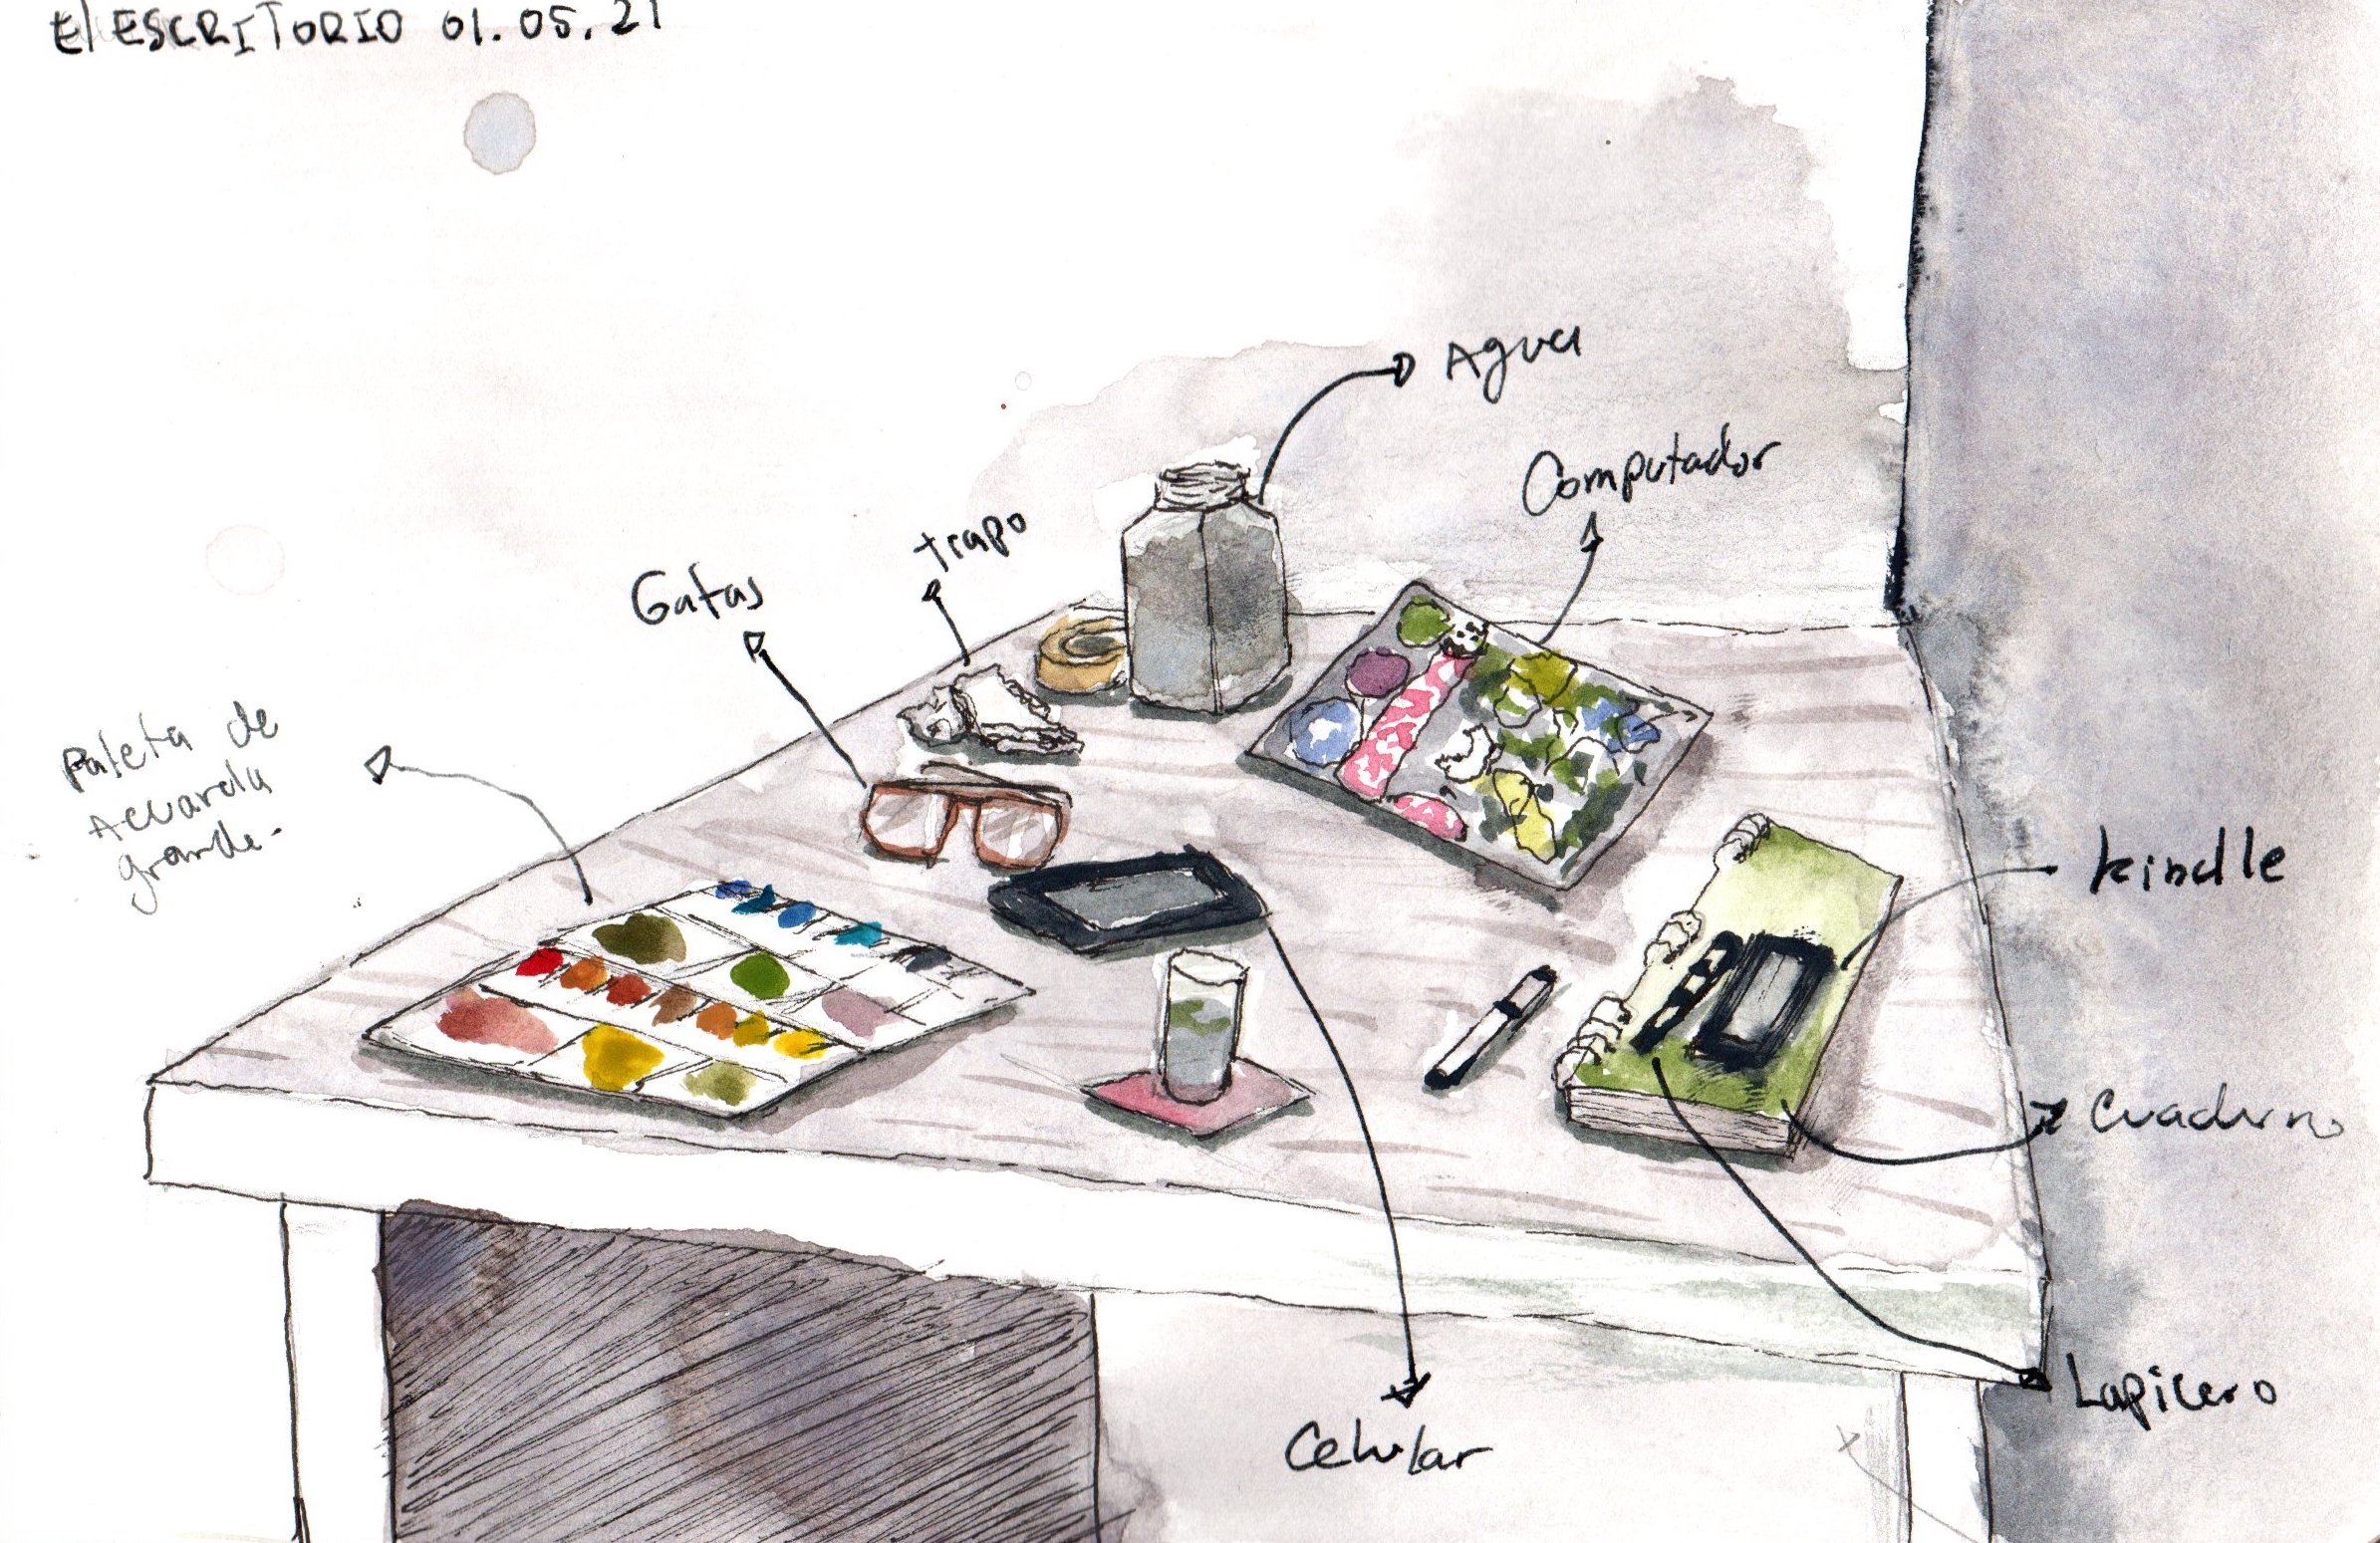 El ESCRITORIO 01.05.21
Agua
Computador
trapo
Gafas
Paleta de
Acuarela
grande.
kindle
Cuaderno
Lapicero
Celular